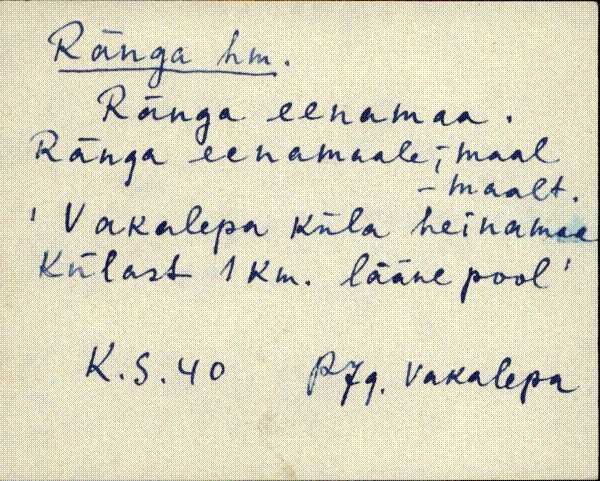 Ränga hm.
Ränga eenamaa.
Ränga eenamaale, -maal
-maalt.
'Vakalepa küla heinamaa
Külast 1 km. lääne pool'
K.S. 40 PJg. Vakalepa